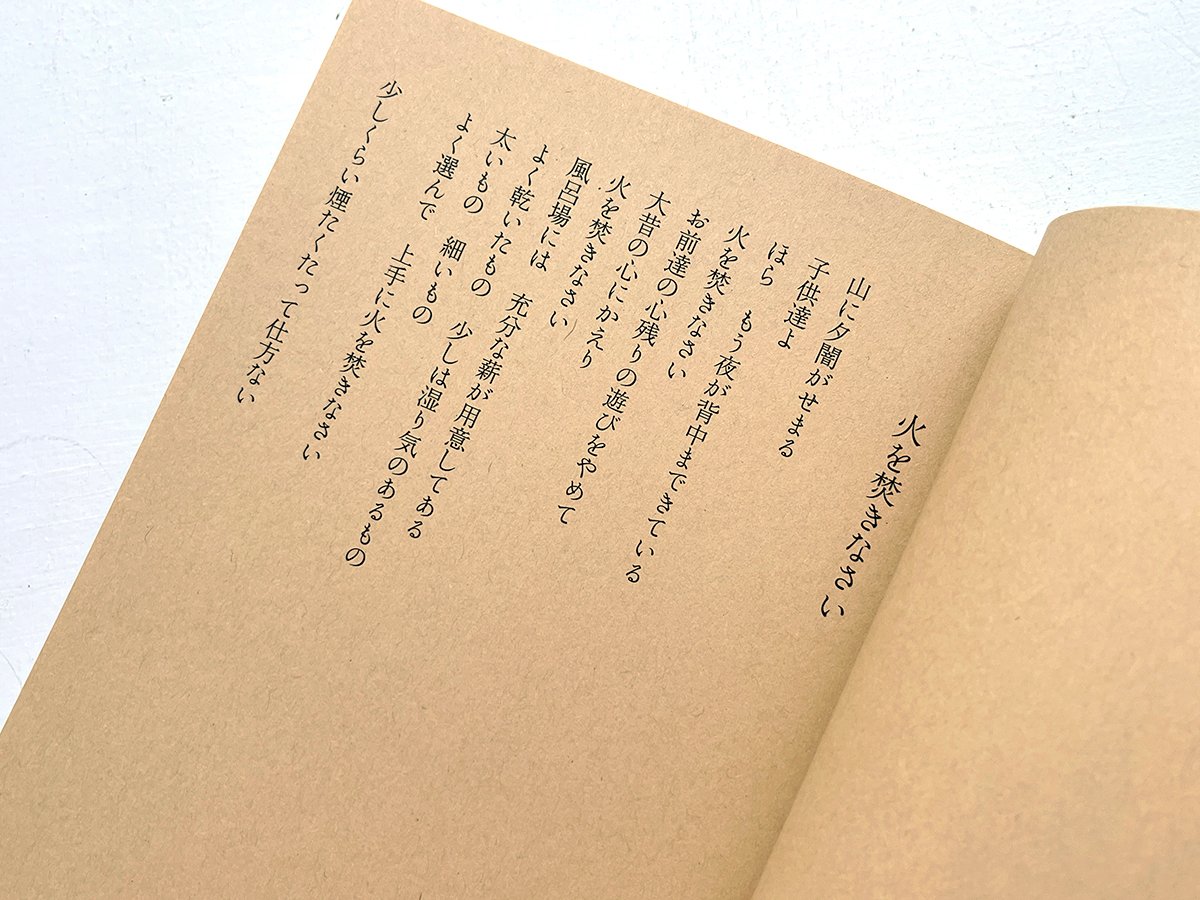 火を焚きなさい
山に夕闇がせまる
子供達よ
ほら　もう夜が背中まできている
火を焚きなさい
お前達の心残りの遊びをやめて
大昔の心にかえり
火を焚きなさい
風呂場には　充分な薪が用意してある
よく乾いたもの　少しは湿り気のあるもの
太いもの　細いもの
よく選んで　上手に火を焚きなさい
少しくらい煙たくたって仕方ない